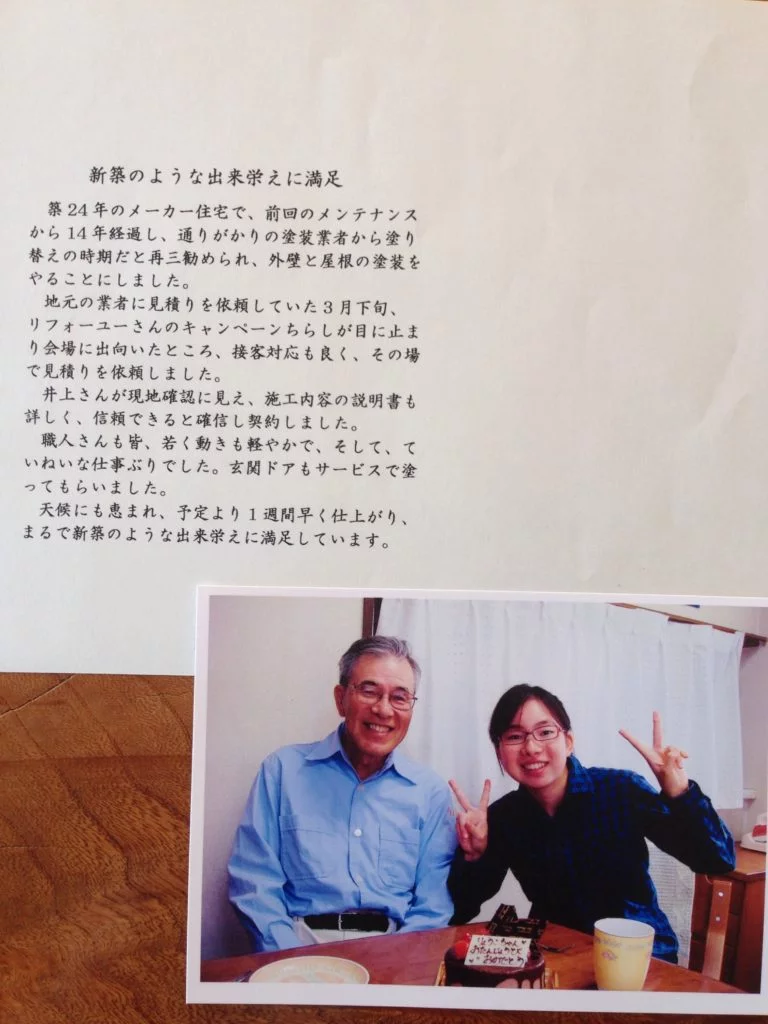 新築のような出来栄えに満足
築24年のメーカー住宅で、前回のメンテナンス
から14年経過し、通りがかりの塗装業者から塗り
替えの時期だと再三勧められ、外壁と屋根の塗装を
やることにしました。
地元の業者に見積りを依頼していた3月下旬、
リフォーユーさんのキャンペーンちらしが目に止ま
り会場に出向いたところ、接客対応も良く、その場
で見積りを依頼しました。
井上さんが現地確認に見え、施工内容の説明書も
詳しく、信頼できると確信し契約しました。
職人さんも皆、若く動きも軽やかで、そして、て
いねいな仕事ぶりでした。玄関ドアもサービスで塗
ってもらいました。
天候にも恵まれ、予定より1週間早く仕上がり、
まるで新築のような出来栄えに満足しています。
おたんじょうび
おめでとう